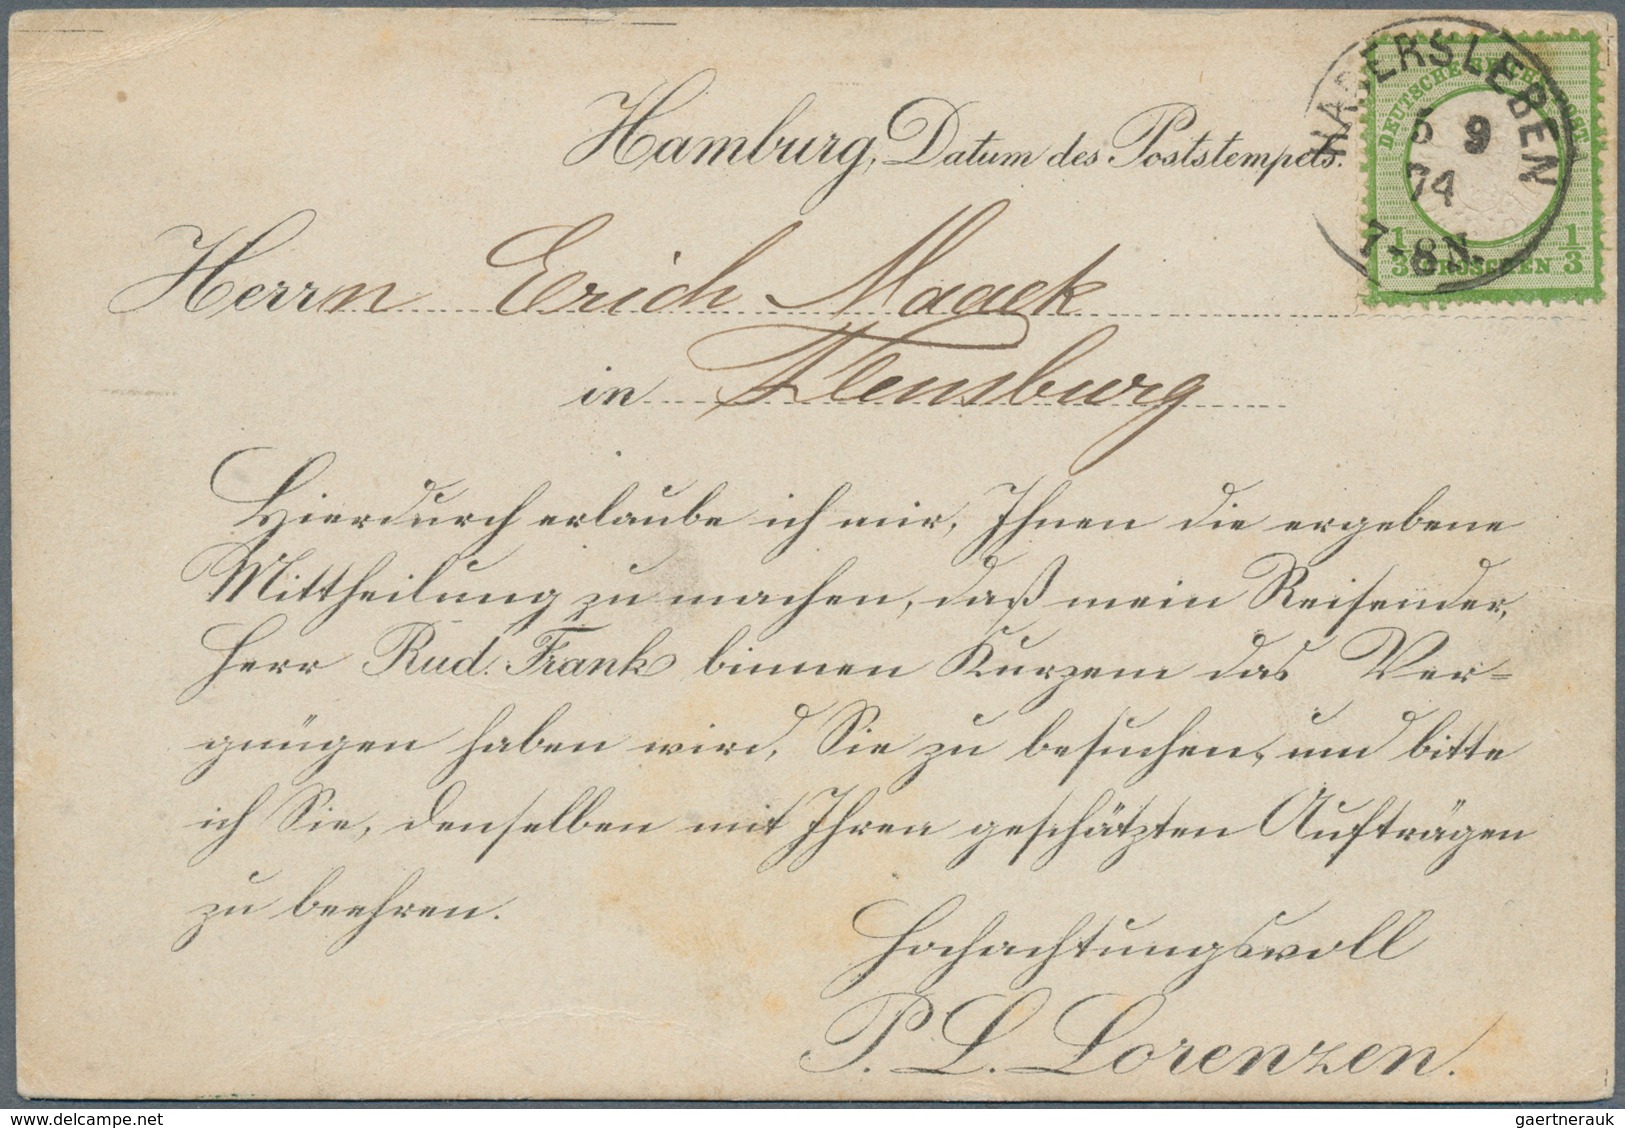 Hamburg, Datum des Poststempels.
HADERSLEBEN
5 9
74
7-8N.
DEUTSCHE REICHS-POST
1/3 GROSCHEN 1/3
Herrn Erich Maack
in Flensburg
Hierdurch erlaube ich mir, Ihnen die ergebene
Mittheilung zu machen, daß mein Reisender,
Herr Rud. Frank binnen Kurzem das Ver-
gnügen haben wird, Sie zu besuchen, und bitte
ich Sie, denselben mit Ihren geschätzten Aufträgen
zu beehren.
Hochachtungsvoll
P. L. Lorenzen.
gaertnerauk